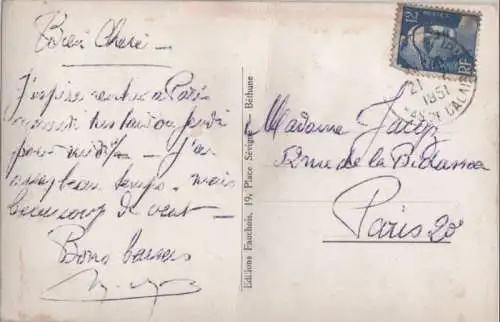 Bien Cheri —
J'espère rentrer à Paris
mercredi tantôt ou jeudi
pour midi — J'ai
assez beau temps. mais
beaucoup de vent —
Bons baisers
Editions Fauchois, 19, Place Sévigné - Béthune
12
POSTES
RF
21
1951
PAS DE CALAIS
Madame Jacq
52 rue de la Bidassoa
Paris 20